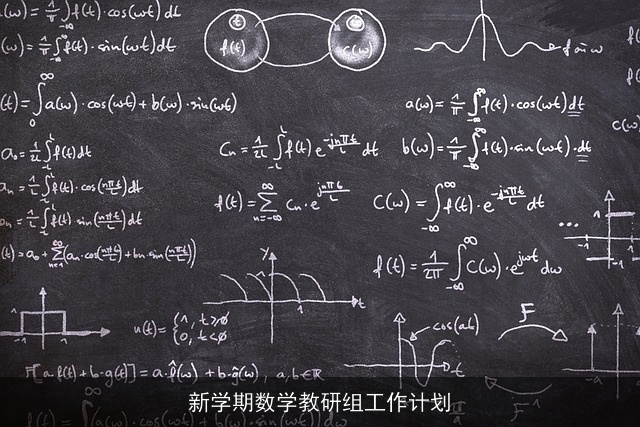 a(ω) = 1/π ∫ f(t)·cos(ωt) dt
b(ω) = 1/π ∫ f(t)·sin(ωt) dt
f(t) c(ω)
f(t) = ∫₀^∞ a(ω)·cos(ωt) + b(ω)·sin(ωt)
a(ω) = 1/π ∫_{-∞}^{∞} f(t)·cos(ωt) dt
a₀ = 1/2L ∫_{-L}^{L} f(t) dt
Cn = 1/2L ∫_{-L}^{L} f(t) e^{-jnπt/L} dt
b(ω) = 1/π ∫_{-∞}^{∞} f(t)·sin(ωt)·dt
an = 1/L ∫_{-L}^{L} f(t)·cos(nπt/L) dt
f(t) = Σ_{n=-∞}^{∞} Cn·e^{jnπt/L}
C(ω) = ∫_{-∞}^{∞} f(t)·e^{-jnπt/L} dt
bn = 1/L ∫_{-L}^{L} f(t)·sin(nπt/L) dt
f(t) = a₀ + Σ_{n=1}^{∞} (an·cos(nπt/L) + bn·sin(nπt/L))
f(t) = 1/2π ∫_{-∞}^{∞} C(ω)·e^{jωt} dω
y
1
t
u(t) = { 1, t≥0
0, t<0
cos(at)
t
F
F[a·f(t) + b·g(t)] = a·f̂(ω) + b·ĝ(ω), a,b∈ℝ
-a
新学期数学教研组工作计划